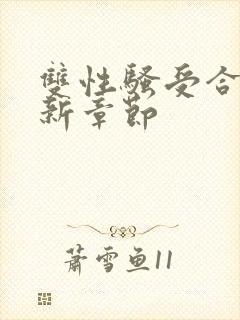 雙性騷受合
新章節
蕭雪魚11